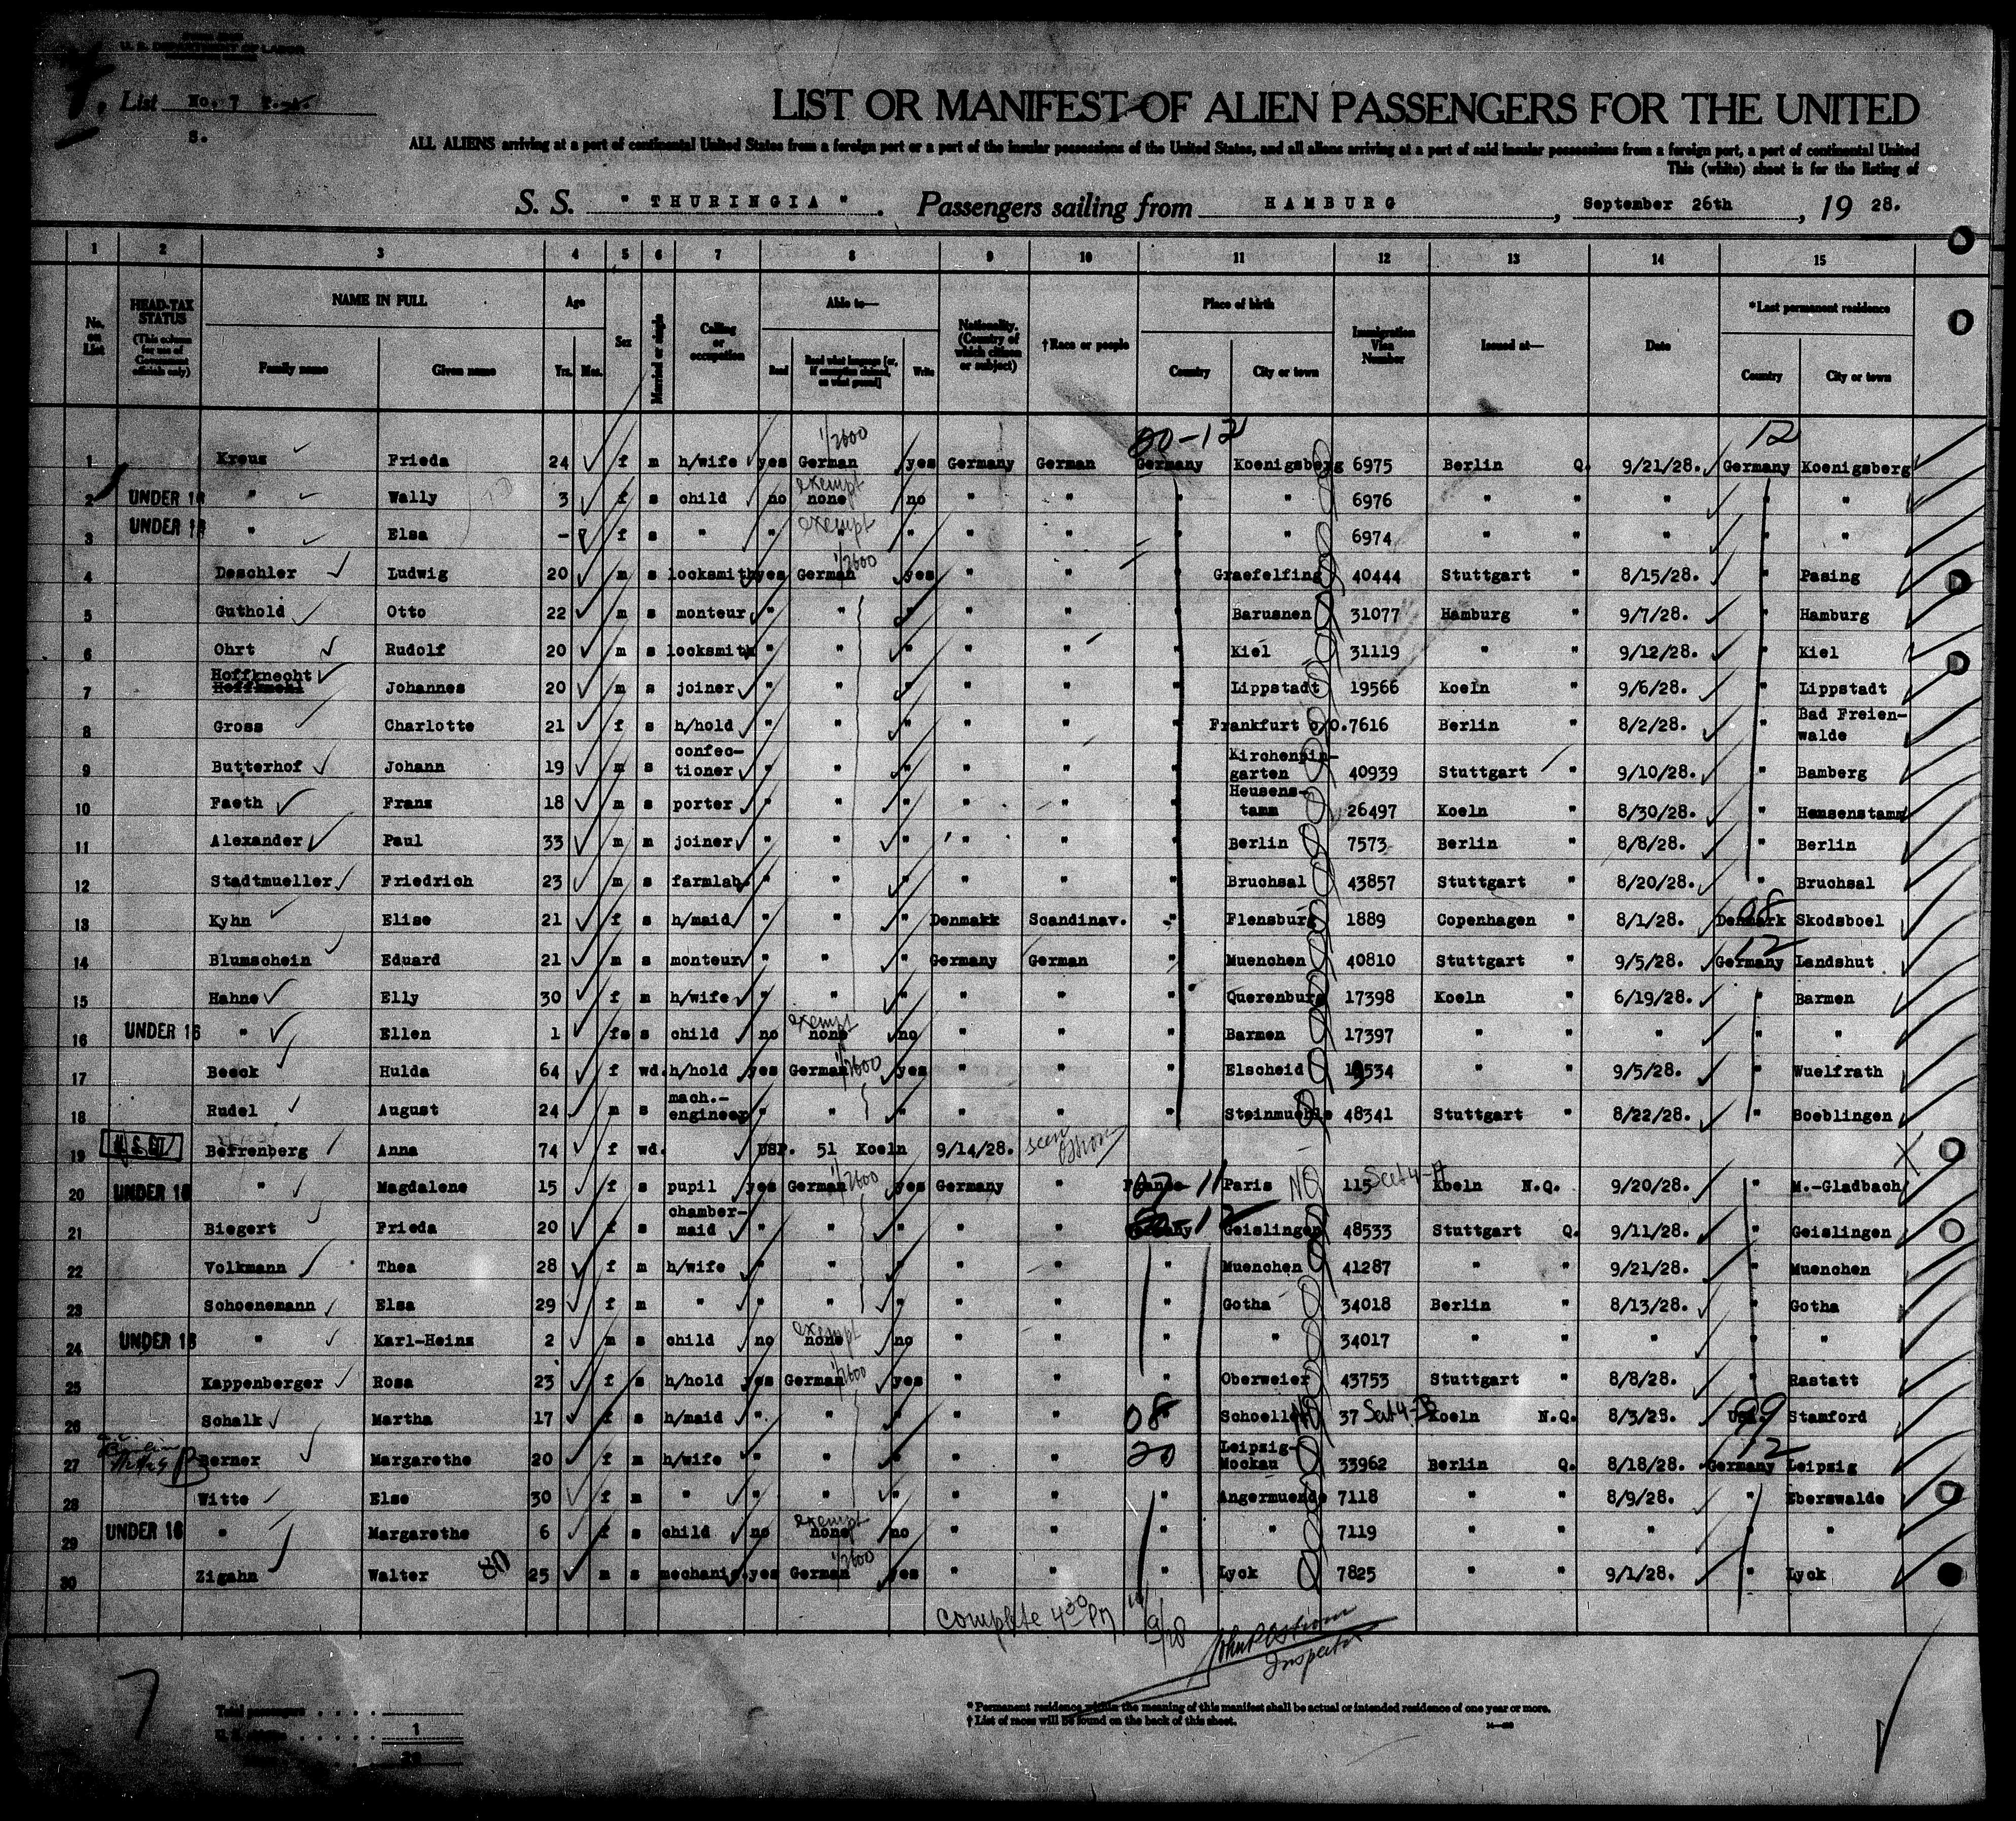 U. S. DEPARTMENT OF LABOR
List No. 7
S.
LIST OR MANIFEST OF ALIEN PASSENGERS FOR THE UNITED
ALL ALIENS arriving at a port of continental United States from a foreign port or a port of the insular possessions of the United States, and all aliens arriving at a port of said insular possessions from a foreign port, a port of continental United
This (white) sheet is for the listing of
S. S. " THURINGIA ". Passengers sailing from HAMBURG, September 26th, 19 28.
1 2 3 4 5 6 7 8 9 10 11 12 13 14 15
No. on List
HEAD-TAX STATUS (This column for use of Government officials only)
NAME IN FULL Family name Given name
Age Yrs. Mos.
Sex
Married or single
Calling or occupation
Able to— Read Read what language [or, if exemption claimed, on what ground] Write
Nationality. (Country of which citizen or subject)
†Race or people
Place of birth Country City or town
Immigration Visa Number
Issued at—
Date
*Last permanent residence Country City or town
1/2600 12
1 Kreus Frieda 24 f m h/wife yes German yes Germany German Germany Koenigsberg 6975 Berlin Q. 9/21/28. Germany Koenigsberg
2 UNDER 16 " Wally 3 f s child no exempt none no " " " " 6976 " " " " "
3 UNDER 16 " Elsa - f s " " exempt " " " " " 6974 " " " " "
4 Deschler Ludwig 20 m s locksmith yes German 1/2600 yes " " " Graefelfing 40444 Stuttgart " 8/15/28. " Pasing
5 Guthold Otto 22 m s monteur " " " " " " Barusnen 31077 Hamburg " 9/7/28. " Hamburg
6 Ohrt Rudolf 20 m s locksmith " " " " " " Kiel 31119 " " 9/12/28. " Kiel
7 Hoffknecht Johannes 20 m s joiner " " " " " " Lippstadt 19566 Koeln " 9/6/28. " Lippstadt
8 Gross Charlotte 21 f s h/hold " " " " " " Frankfurt o/O. 7616 Berlin " 8/2/28. " Bad Freienwalde
9 Butterhof Johann 19 m s confectioner " " " " " " Kirchenpingarten 40939 Stuttgart " 9/10/28. " Bamberg
10 Faeth Franz 18 m s porter " " " " " " Heusenstamm 26497 Koeln " 8/30/28. " Heusenstamm
11 Alexander Paul 33 m m joiner " " " " " " Berlin 7573 Berlin " 8/8/28. " Berlin
12 Stadtmueller Friedrich 23 m s farmlab. " " " " " " Bruchsal 43857 Stuttgart " 8/20/28. " Bruchsal
13 Kyhn Elise 21 f s h/maid " " " Denmakk Scandinav. " Flensburg 1889 Copenhagen " 8/1/28. Denmark Skodsboel
14 Blumschein Eduard 21 m s monteur " " " Germany German " Muenchen 40810 Stuttgart " 9/5/28. 12 Germany Landshut
15 Hahne Elly 30 f m h/wife " " " " " " Querenburg 17398 Koeln " 6/19/28. " Barmen
16 UNDER 16 " Ellen 1 fe s child no exempt none no " " " Barmen 17397 " " " " "
17 Beeck Hulda 64 f wd. h/hold yes German 1/2600 yes " " " Elscheid 534 " " 9/5/28. " Wuelfrath
18 Rudel August 24 m s mach.-engineer " " " " " " Steinmuehle 48341 Stuttgart " 8/22/28. " Boeblingen
19 Berrenberg Anna 74 f wd. USP. 51 Koeln 9/14/28. seen
20 UNDER 16 " Magdalene 15 f s pupil yes German 1/2600 yes Germany " Paris NQ 115 Sect 4-A Koeln N.Q. 9/20/28. " M.-Gladbach
21 Biegert Frieda 20 f s chambermaid " " " " " Germany Geislingen 48533 Stuttgart Q. 9/11/28. " Geislingen
22 Volkmann Thea 28 f m h/wife " " " " " " Muenchen 41287 " " 9/21/28. " Muenchen
23 Schoenemann Elsa 29 f m " " " " " " " Gotha 34018 Berlin " 8/13/28. " Gotha
24 UNDER 16 " Karl-Heinz 2 m s child no exempt none no " " " " 34017 " " " " "
25 Kappenberger Rosa 23 f s h/hold yes German 1/2600 yes " " " Oberweier 43753 Stuttgart " 8/8/28. " Rastatt
26 Schalk Martha 17 f s h/maid " " " " " 08 37 Koeln N.Q. 8/3/28. 99 Stamford
27 Berner Margarethe 20 f m h/wife " " " " " 20 Leipzig-Mockau 33962 Berlin Q. 8/18/28. 12 Germany Leipzig
28 Witte Else 30 f m " " " " " " " Angermuende 7118 " " 8/9/28. " Eberswalde
29 UNDER 16 " Margarethe 6 f s child no exempt none no " " " " 7119 " " " " "
30 Zigahn Walter 25 m s mechanic. yes German 1/2600 yes " " " Lyck 7825 " " 9/1/28. " Lyck
Complete 4 30 PM
Inspector
7
Total passengers
1
* Permanent residence within the meaning of this manifest shall be actual or intended residence of one year or more.
† List of races will be found on the back of this sheet.